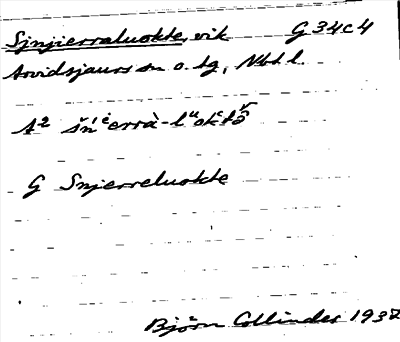 Sjnjierraluokte, vik G 34c4
Arvidsjaurs sn o. tg, Nbtl.
A2 šń́ė̀errà-lᵘokᶜtō̆
G Snjerreluokte
Björn Collinder 1937